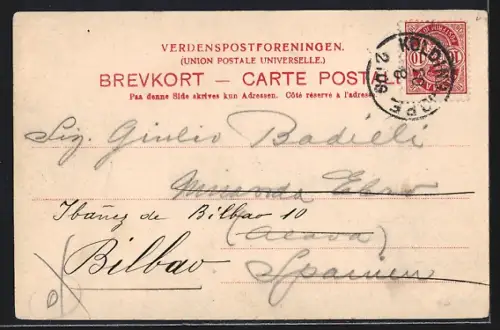 VERDENSPOSTFORENINGEN.
(UNION POSTALE UNIVERSELLE.)
BREVKORT — CARTE POSTALE
Paa denne Side skrives kun Adressen. Côté réservé à l'adresse
KOLDING
Sig. Giulio
Miranda Ebro
Ibáñez de Bilbao 10
(Alava)
Bilbao
Spanien